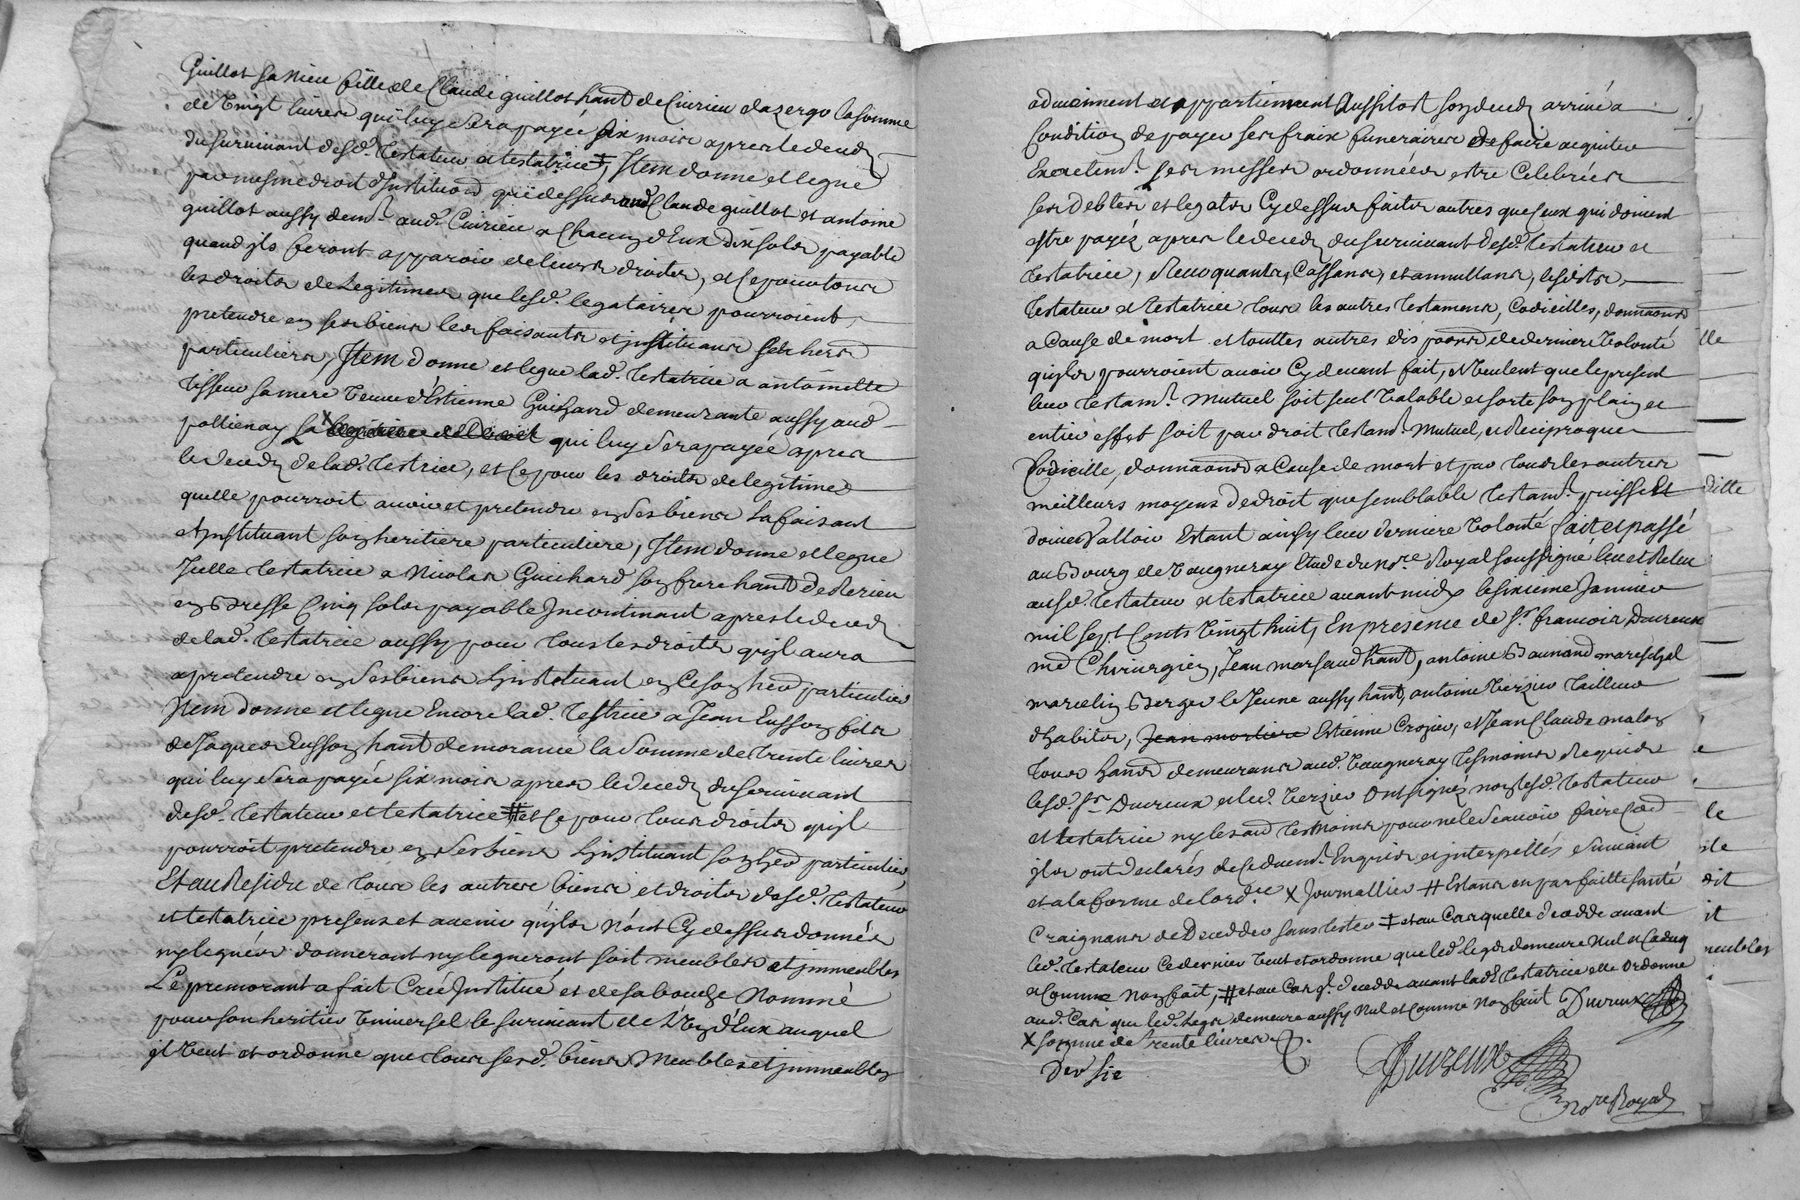 Guillot sa niece fille de Claude guillot hant de Civrieu dazergo la somme
de vingt livres qui luy sera payée six mois apres le deceds
du survivant desd. testateur et testatrice ‡, Item donne et legue
par mesme droit d'Institu͠on que dessus aud. Claude guillot et antoine
guillot aussy demt. aud. Civrieu a chacun d'Eux dix sols payable
quand ils feront apparoir de leurs droits, et ce pour tous
les droits de legitimes que lesd. legataires pourroient
pretendre en ses biens les faisants et jnstituans ses hers
particuliers, Item donne et legue lad. testatrice a antoinette
tisseur sa mere veuve d'Estienne Guichard demeurante aussy aud.
pollienay la X qui luy sera payée apres
le deceds de lad. testrice, et ce pour les droits de legitimes
quelle pourroit avoir et pretendre en ses biens la faisant
et Jnstituant son heritiere particuliere, Item donne et legue
Jcelle testatrice a Nicolas Guichard son frere hant de
en Bresse Cinq sols payable Jncontinant apres le deceds
de lad. testatrice aussy pour tous les droits qu'jl aura
a pretendre en ses biens L'jnstituant en ce son her particulier
Item donne et legue Encore lad. testrice a Jean Eusson fils
de Jaques Eusson hant de morancé la somme de trente livres
qui luy sera payée six mois apres le deceds du survivant
desd. testateur et testatrice # et ce pour tous droits qu'jl
pourroit pretendre en ses biens L'jnstituant son her particulier,
Et au Residu de tous les autres biens et droits desd. testateur
et testatrice presens et avenir qu'jls n'ont Cy dessus donnés
ny legués donneront ny legueront soit meubles et jmmeubles
Le premorant a fait Creé Jnstitué et de sa bouche Nommé
pour son heritier Vniversel le survivant de L'Vn d'Eux auquel
jl veut et ordonne que tous sesd. biens Meubles et jmmeubles
adviennent et appartiennent Aussitost son deceds arrivé a
Condition de payer ses fraix funeraires de faire acquiter
Exactemt. ses messes ordonnées estre Celebrées
ses debtes et legats Cy dessus faits autres que ceux qui doivent
estre payés apres le deceds du survivant desd. testateur et
testatrice, Revoquants, Cassans, et annullans, lesdits
testateur et testatrice tous les autres testamens, Codicilles, dona͠ons
a Cause de mort et touttes autres disposons de derniere Volonté
qu'jls pourroient avoir Cy devant fait, Veulent que le present
leur testamt. Mutuel soit seul Valable et sorte son plain et
entier effet soit par droit testamt. Mutuel, et Reciproque
Codicille, dona͠ons a Cause de mort et par tous les autres
meilleurs moyens de droit que semblable testamt. puisse Et
doive Valloir Estant ainsy leur derniere Volonté fait et passé
au Bourg de Vaugneray Etude du nore Royal soussigné leu et Releu
ausd. testateur et testatrice avant midy le sixieme Janvier
mil sept Cents Vingt huit, En presence de Sr. francois Ducreux
me Chirurgien, Jean marsaud hant, antoine Baunand mareschal
marcelin Berger le Jeune aussy hant, antoine Verzier tailleur
d'habits, Jean mortiere Estienne Crozier, et Jean Claude malon
tous hants demeurans aud. Vaugneray tesmoins Requis
lesd. Sr. Ducreux et led. Verzier Ont signés non lesd. testateur
et testatrice ny les aud. tesmoins pour ne le scavoir faire Com͠e
jls ont declarés de ce duemt. Enquis et jnterpellés suivant
et a la forme de lord.ce X Journallier # Estans en parfaitte santé
Craignans de Decedder sans tester ‡ et au Cas quelle decedde avant
led. testateur ce dernier Veut et ordonne que led. legs demeure Nul et Caduq
et Comme non fait, # et au Cas q'. decedde avant lad. testatrice elle Ordonne
aud. Cas que led. legs demeure aussy Nul et comme non fait Ducreux
X somme de trente livres
Versie
Ducreux
nore Royal
lle
dille
e
le
ile
dit
it
meubles